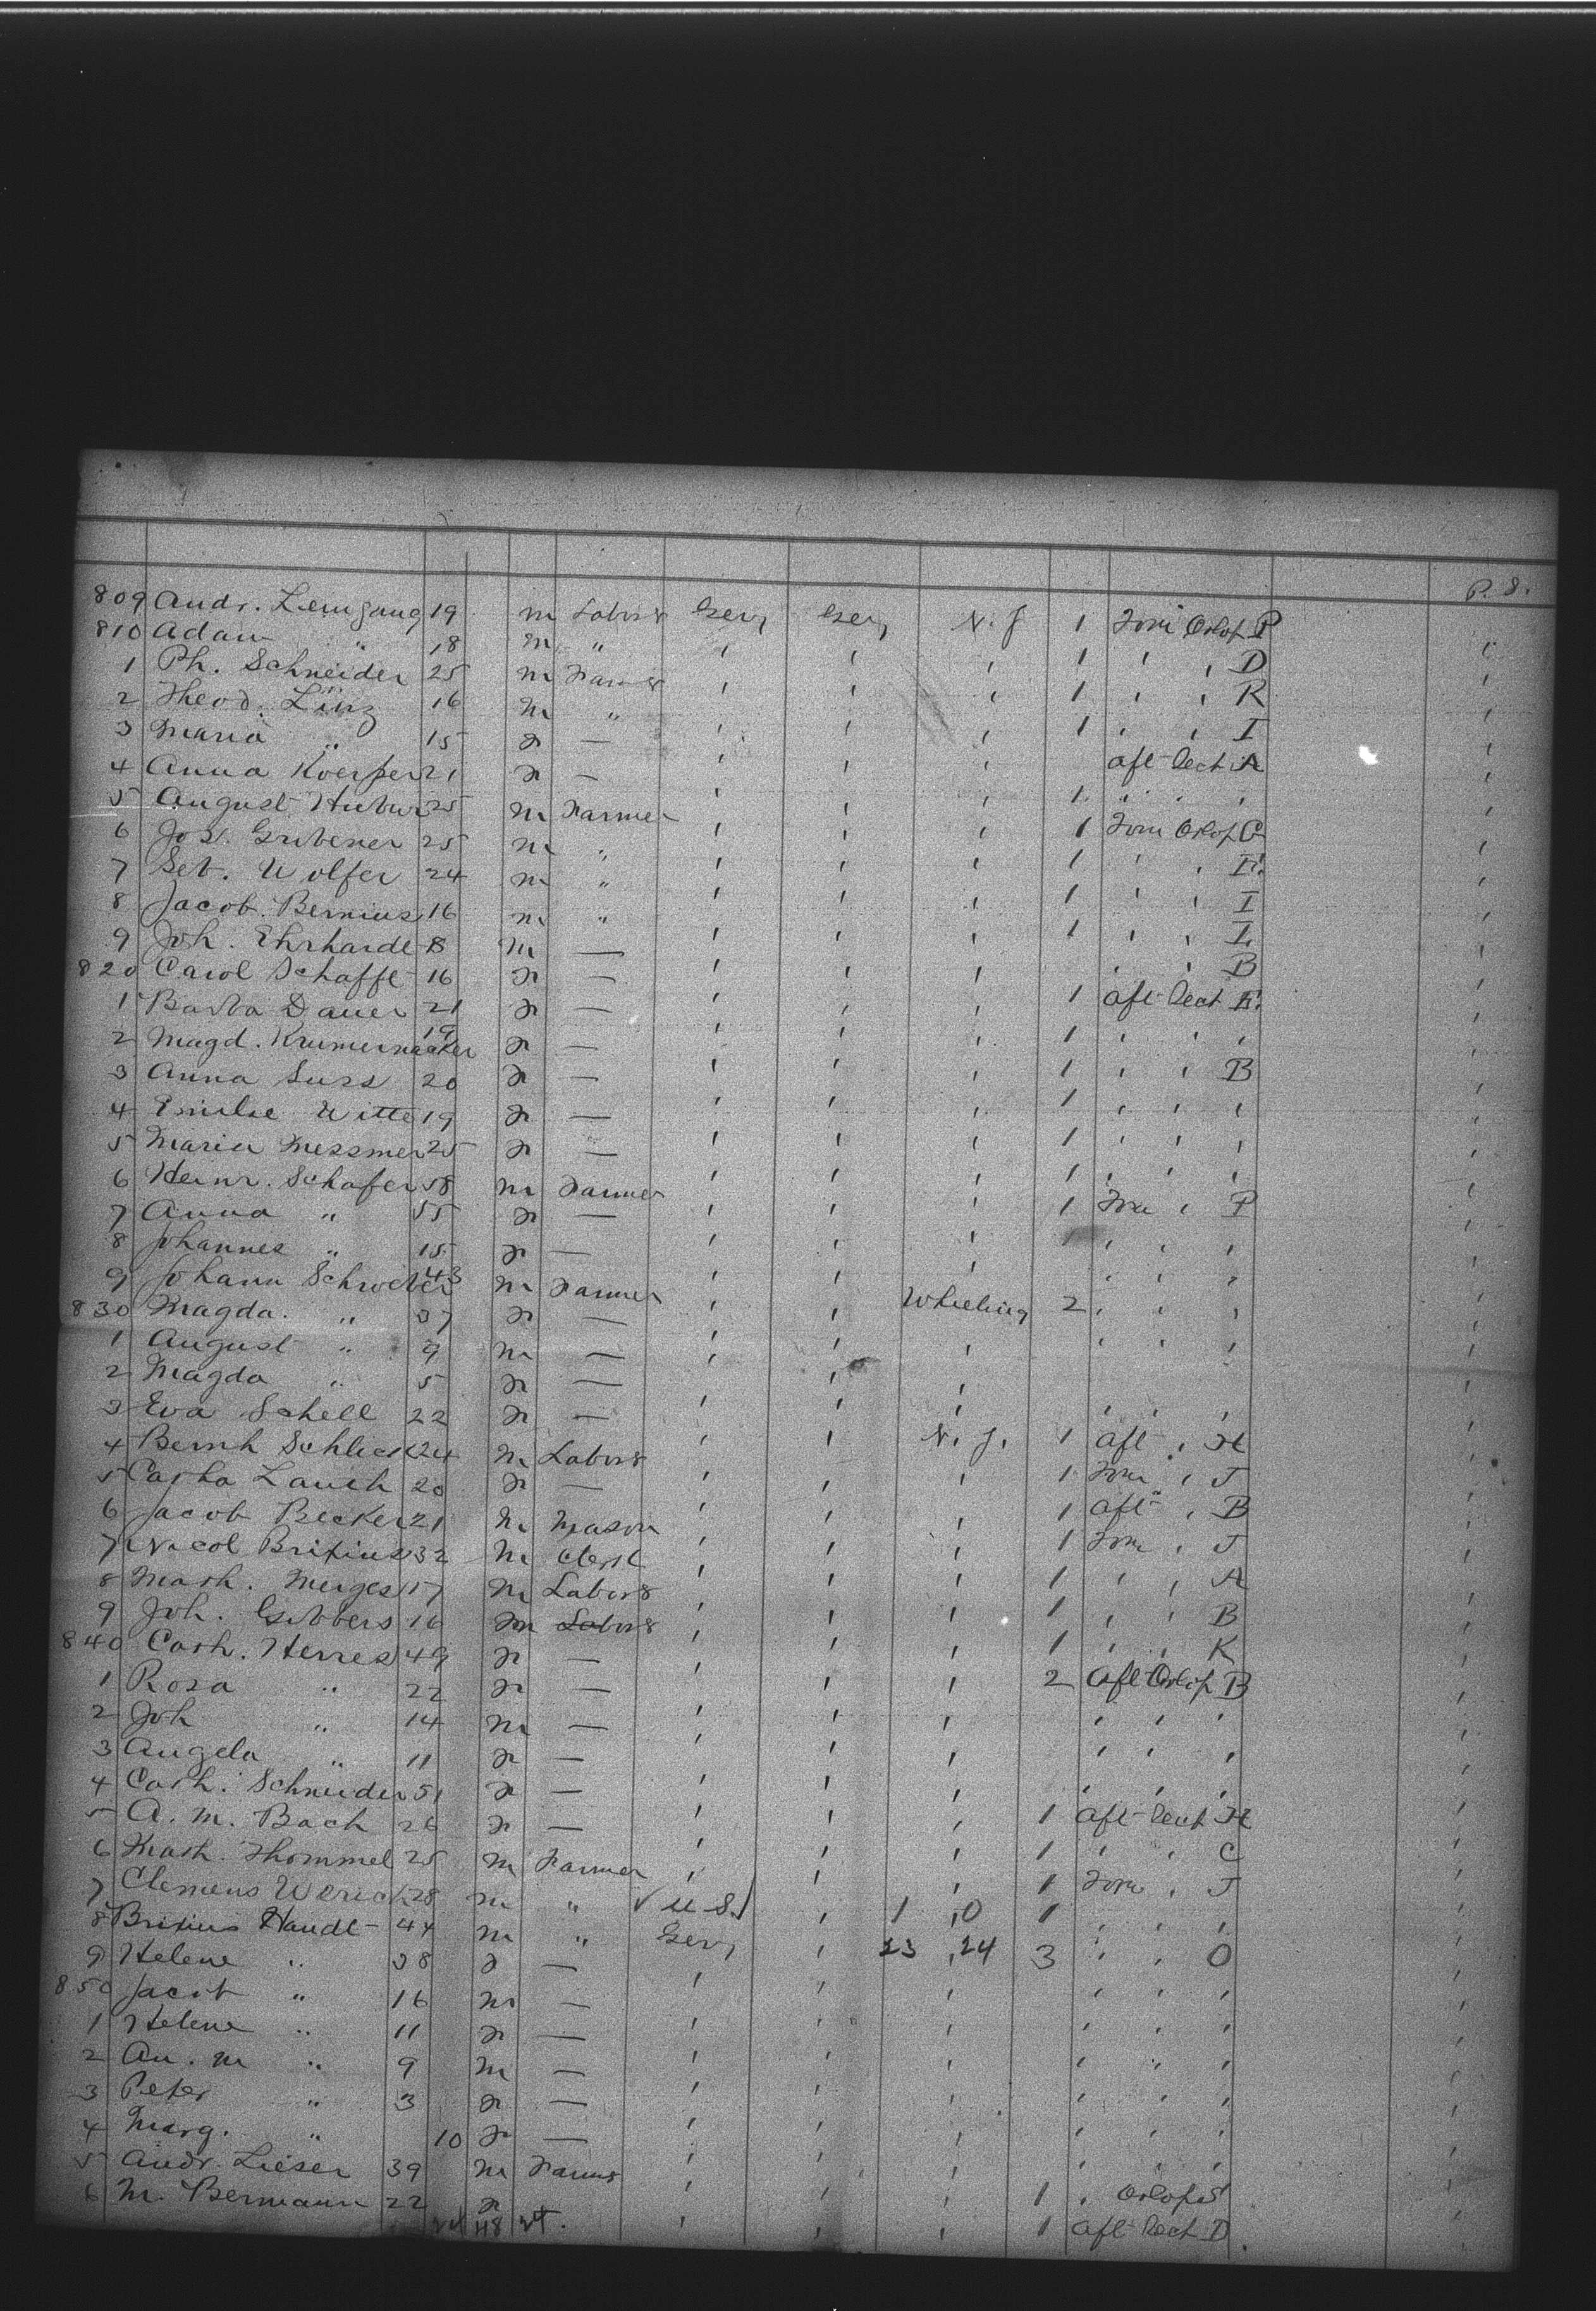 P. 8.
809 Andr. Leingang 19 m Labor Ger, Ger, N. J 1 Forw Orlop P
810 Adam " 18 m " ' ' ' 1 ' ' D
1 Ph. Schneider 25 m Farmer ' ' ' 1 ' ' R
2 Theod. Linz 16 m " ' ' ' 1 ' ' I
3 Maria " 15 f — ' ' ' aft Deck A
4 Anna Koerper 21 f — ' ' ' 1 " ' '
5 August Huber 25 m Farmer ' ' ' 1 Forw Orlop G
6 Jos. Gribener 25 m " ' ' ' 1 ' ' E.
7 Seb. Wolfer 24 m " ' ' ' 1 ' ' I
8 Jacob Bernius 16 m " ' ' ' 1 ' ' I.
9 Joh. Ehrhardt 8 m — ' ' ' ' ' B
820 Carol Schafft 16 f — ' ' ' 1 aft Deck E.
1 Barba Dauer 21 f — ' ' ' 1 ' ' '
2 Magd. Krumernacker 19 f — ' ' ' 1 ' ' B
3 Anna Suss 20 f — ' ' ' 1 ' ' '
4 Emilie Witte 19 f — ' ' ' 1 ' ' '
5 Maria Messmer 25 f — ' ' ' 1 ' ' '
6 Heinr. Schafer 58 m Farmer ' ' ' 1 Forw ' P
7 Anna " 55 f — ' ' ' ' ' '
8 Johannes " 15 f — ' ' ' ' ' '
9 Johann Schroeber 43 m Farmer ' ' Wheeling 2 ' ' '
830 Magda. " 37 f — ' ' ' ' ' '
1 August " 9 m — ' ' '
2 Magda " 5 f — ' ' ' ' ' '
3 Eva Schell 22 f — ' ' N. J. 1 aft ' H
4 Bernh Schlick 24 m Labor ' ' ' 1 Forw ' J
5 Catha Lauth 20 f — ' ' ' 1 aft ' B
6 Jacob Becker 21 m Mason ' ' ' 1 Forw ' J
7 Nicol Brixius 32 m Clerk ' ' ' 1 ' ' A
8 Math. Merges 17 m Labor ' ' ' 1 ' ' B
9 Joh. Gibbers 16 m Labor ' ' ' 1 ' ' K
840 Cath. Herres 49 f — ' ' ' 2 aft Orlop B
1 Rosa " 22 f — ' ' ' ' ' '
2 Joh " 14 m — ' ' ' ' ' '
3 Angela " 11 f — ' ' ' ' ' '
4 Cath. Schneider 51 f — ' ' ' 1 aft Deck H
5 A. M. Bach 26 f — ' ' ' 1 ' ' C
6 Math. Thommel 25 m Farmer ' ' ' 1 Forw ' J
7 Clemens 28 m " √ U.S. ' 1 ,0 1 ' ' '
8 Brixius Haudt 44 m " Ger, ' 23 ,24 3 ' ' O
9 Helene " 38 f — ' ' ' ' ' '
850 Jacob " 16 m — ' ' ' ' ' '
1 Helene " 11 f — ' ' ' ' " '
2 An. M " 9 m — ' ' ' ' ' '
3 Peter " 3 f — ' ' ' ' ' '
4 Marg. " 10 f — ' ' ' ' ' '
5 Andr. Lieser 39 m Farmer ' ' ' 1 ' Orlop S
6 M. Bermann 22 f ' ' ' 1 aft Deck D
48